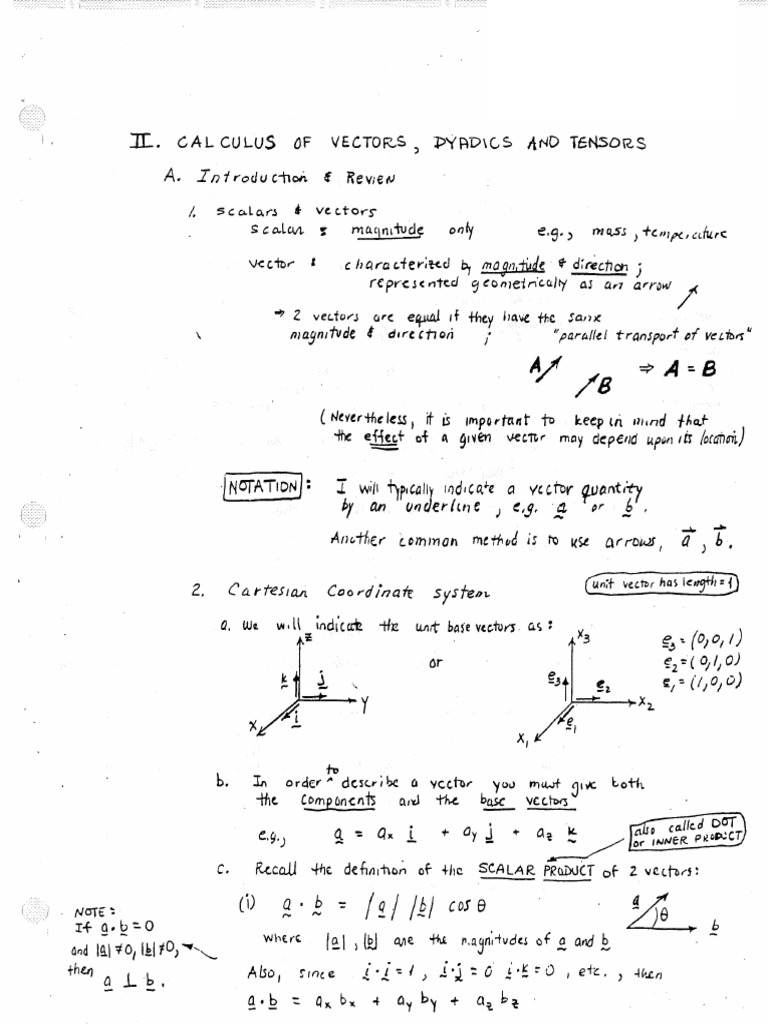 II. CALCULUS OF VECTORS, DYADICS AND TENSORS
A. Introduction & Review
1. scalars & vectors
scalar : magnitude only e.g., mass, temperature
vector : characterized by magnitude & direction ;
represented geometrically as an arrow
⇒ 2 vectors are equal if they have the same
magnitude & direction ; "parallel transport of vectors"
A B ⇒ A = B
(Nevertheless, it is important to keep in mind that
the effect of a given vector may depend upon its location)
NOTATION : I will typically indicate a vector quantity
by an underline, e.g. a̲ or b̲.
Another common method is to use arrows, a⃗, b⃗.
2. Cartesian Coordinate system
unit vector has length = 1
a. We will indicate the unit base vectors as :
z k̲ j̲ y i̲ x
or
x₃ e̲₃ e̲₂ x₂ e̲₁ x₁
e̲₃ = (0,0,1)
e̲₂ = (0,1,0)
e̲₁ = (1,0,0)
b. In order ^to describe a vector you must give both
the components and the base vectors
e.g., a̲ = aₓ i̲ + a_y j̲ + a_z k̲
also called DOT
or INNER PRODUCT
c. Recall the definition of the SCALAR PRODUCT of 2 vectors:
(i) a̲ · b̲ = |a̲| |b̲| cos θ
a̲ θ b̲
where |a̲|, |b̲| are the magnitudes of a̲ and b̲
Also, since i̲·i̲ = 1, i̲·j̲ = 0 i̲·k̲ = 0, etc., then
a̲·b̲ = aₓbₓ + a_y b_y + a_z b_z
NOTE:
If a̲·b̲ = 0
and |a̲| ≠ 0, |b̲| ≠ 0,
then
a̲ ⊥ b̲.